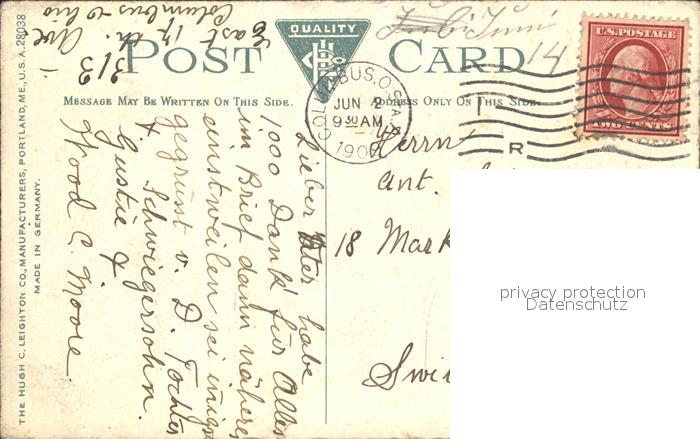 POST CARD
QUALITY
MESSAGE MAY BE WRITTEN ON THIS SIDE.
ADDRESS ONLY ON THIS SIDE.
THE HUGH C. LEIGHTON CO., MANUFACTURERS, PORTLAND, ME., U.S.A. 28038
MADE IN GERMANY.
313
East 17 th. Ave
Columbus Ohio
Lieber Vater habe
1000 Dank für Alles
im Brief dann nähere
einstweilen sei innigst
gegrüsst v. D. Tochter
+ Schwiegersohn.
Gustie +
Wood C. Moore
14
COLUMBUS, O. STA.
JUN 2
9 30 AM
190
R
U.S. POSTAGE
TWO CENTS
Herrn
Ant.
18 Mark
Swi
privacy protection
Datenschutz